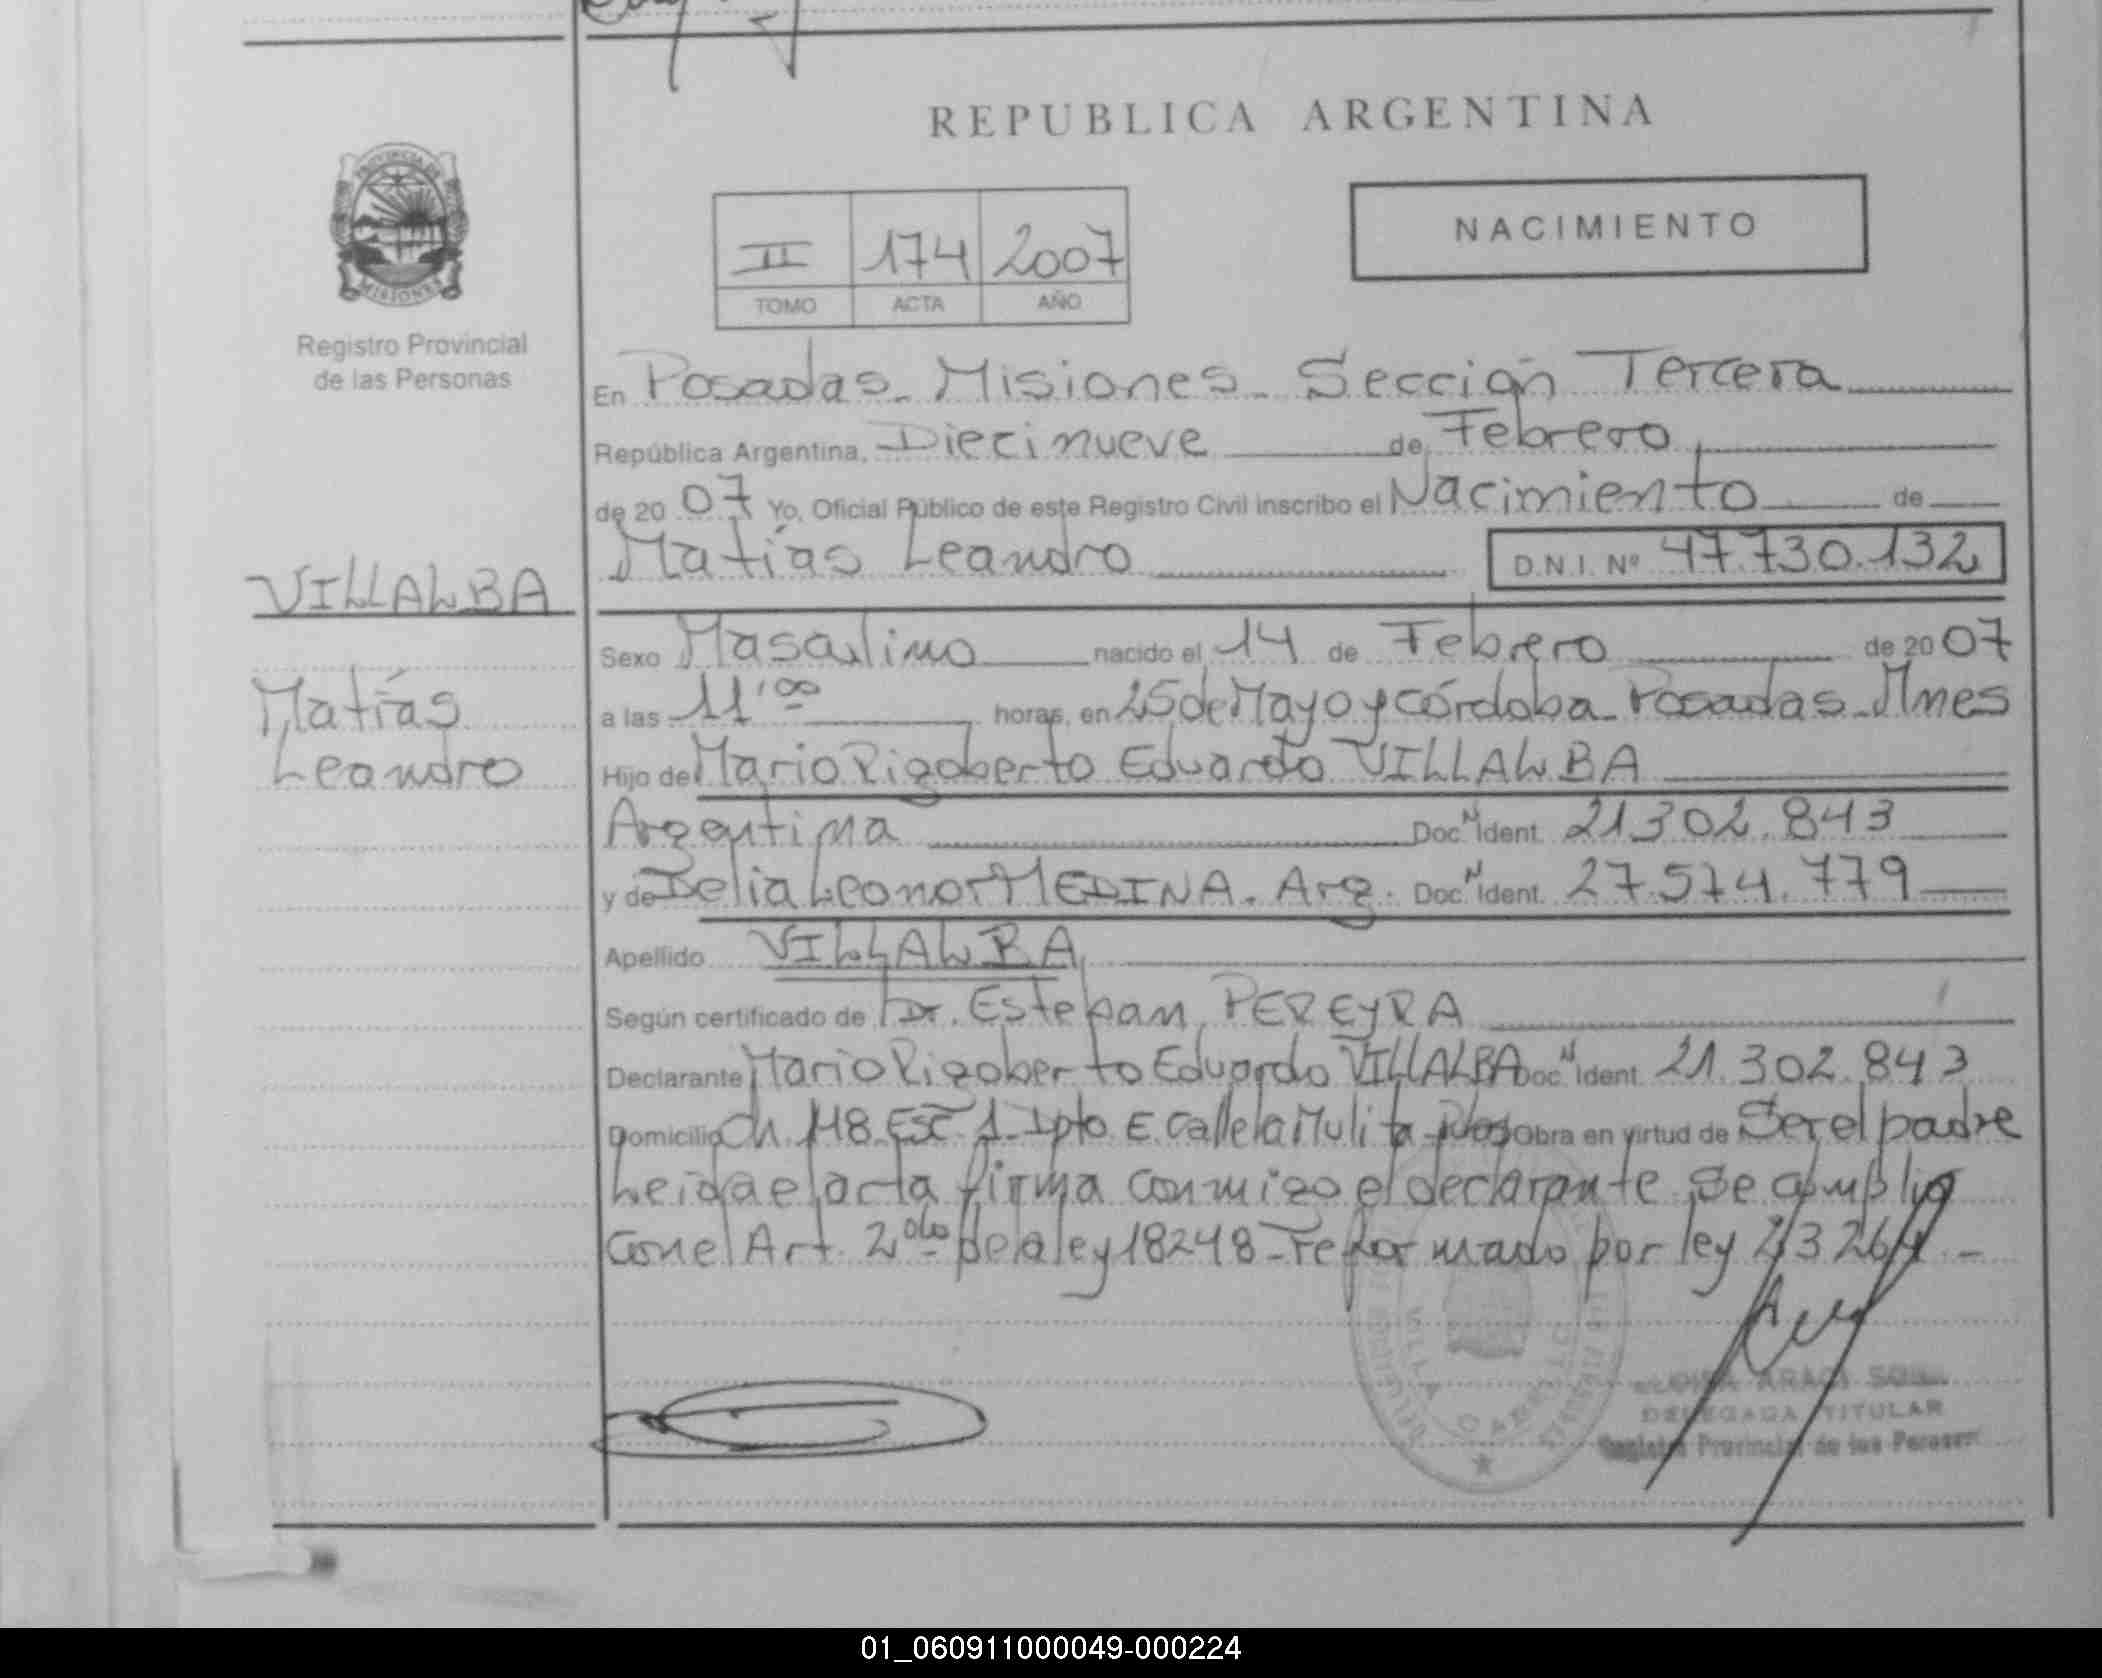 REPUBLICA ARGENTINA
PROVINCIA DE
MISIONES
Registro Provincial
de las Personas
NACIMIENTO
II 174 2007
TOMO ACTA AÑO
En Posadas - Misiones - Sección Tercera
República Argentina, Diecinueve de Febrero
de 20 07 Yo, Oficial Público de este Registro Civil inscribo el Nacimiento de
Matías Leandro D.N.I. Nº 47.730.132
VILLALBA
Matías
Leandro
Sexo Masculino nacido el 14 de Febrero de 20 07
a las 11'00 horas, en 25 de Mayo y Córdoba - Posadas - Mnes
Hijo de Mario Rigoberto Eduardo VILLALBA
Argentina Doc. N Ident. 21302.843
y de Delia Leonor MEDINA. Arg. Doc. N Ident. 27.574.779
Apellido VILLALBA
Según certificado de Dr. Esteban PEREYRA
Declarante Mario Rigoberto Eduardo VILLALBA Doc. N Ident. 21.302.843
Domicilio Ch 148 Esc 1 Dpto E Calle la Mulita Pdas Obra en virtud de Ser el padre
Leida el acta firma conmigo el declarante Se cumplio
Con el Art. 2do de la ley 18248 - reformado por ley 23264 -
DELEGADA TITULAR
Registro Provincial de las Personas
01_060911000049-000224